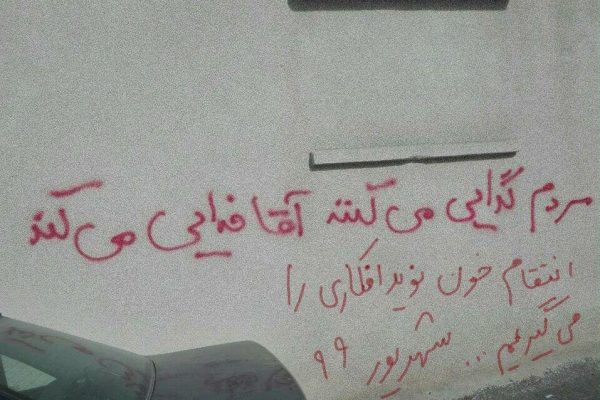 مردم گدایی می کنند آقا خدایی می کند
انتقام خون نوید افکاری را
می گیریم... شهریور ۹۹